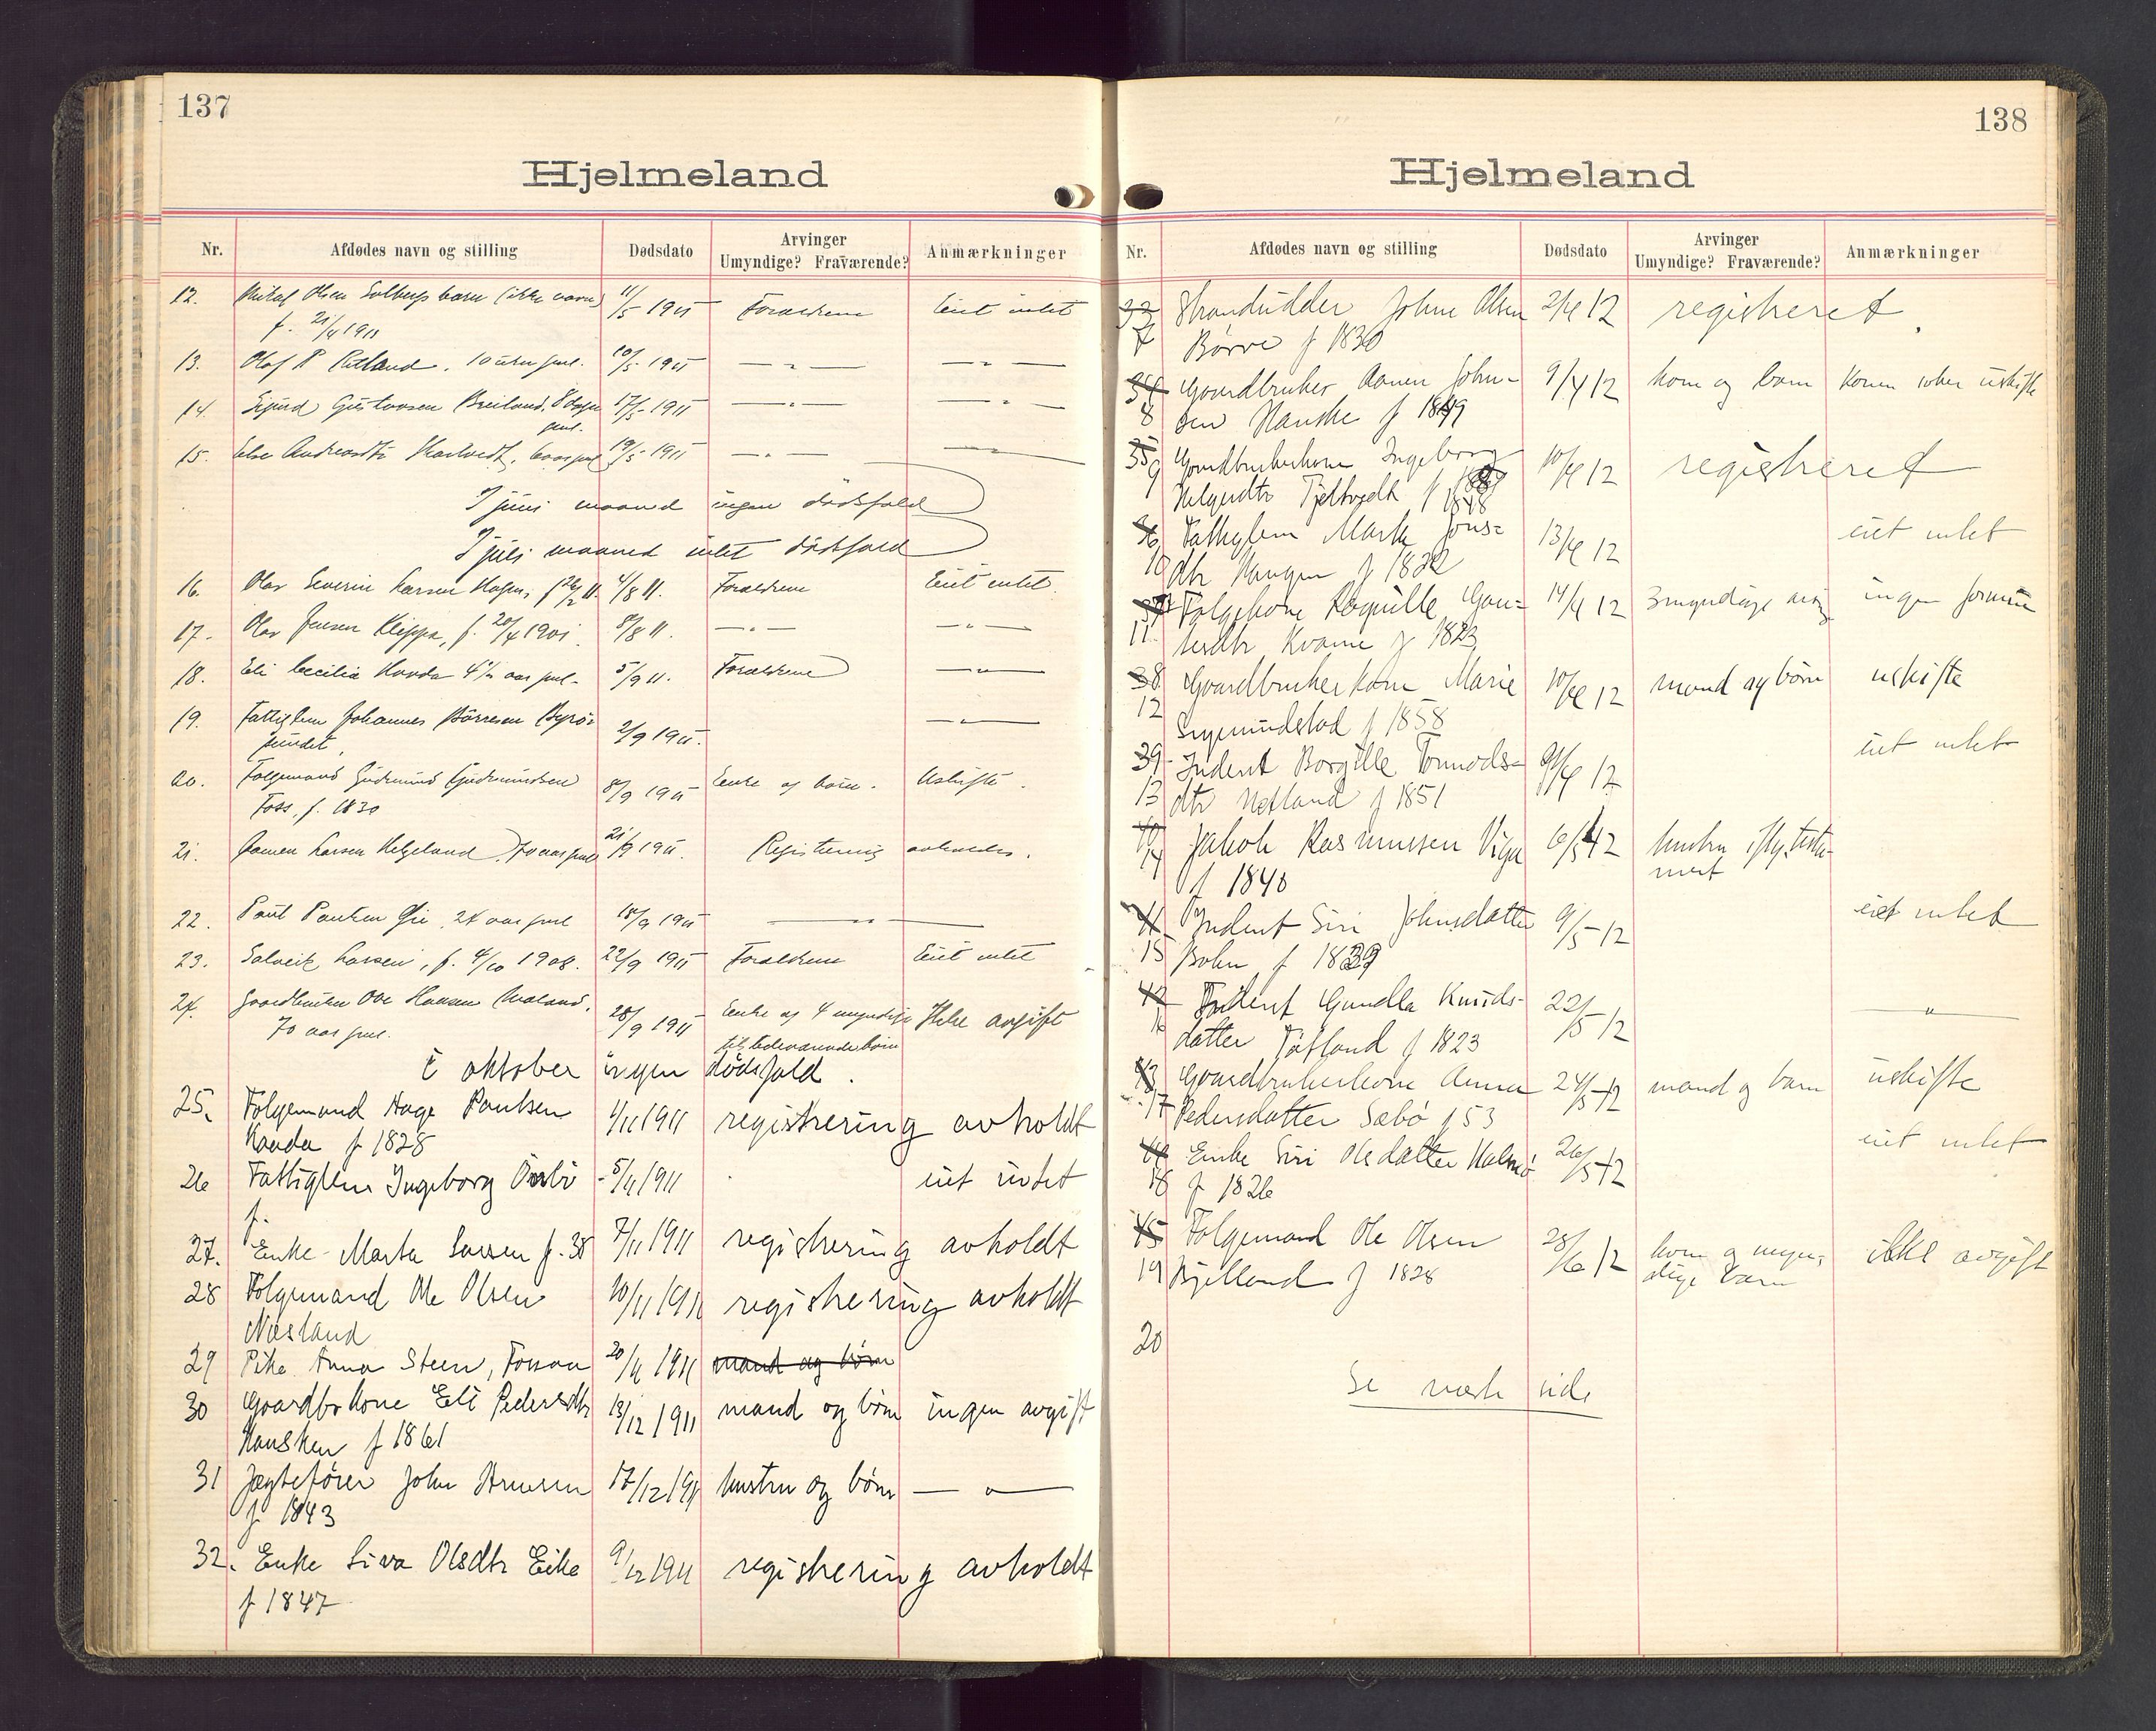 137
Hjelmeland
Nr. Afdødes navn og stilling Dødsdato Arvinger Umyndige? Fraværende? Anmærkninger
12. Olsen Solbergs barn (ikke navn) 11/5 1911 Forældrene Eiet intet
f. 21/4 1911
13. Olaf P. 10 uker gml. 10/5 1911 — " — — " —
14. Sigurd Gustavsen Breiland, 8 dage 17/5 1911 — " — — " —
gml.
15. Else Andreasdtr 19/5 1911 — " —
I juni maaned ingen dødsfald
I juli maaned intet dødsfald
16. Olav Severin Larsen 4/8 11. Forældrene Eiet intet
17. Olav Jensen Klippa, f. 20/4 1901 8/8 11. — " — — " —
18. Eli Cecilia 4 1/2 aar gml. 5/9 11. Forældrene — " —
19. Fattiglem Johannes Børresen Byrø- 2/9 1911. — " —
sundet.
20. Følgemand Gudmund Gudmundsen 8/9 1911 Enke og børn. Uskifte.
Foss, f. 1830
21. Larsen Helgeland, 70 aar gml 21/9 1911. Registrering avholdes.
22. Paul Paulsen 24 aar gml 18/9 1911 — " —
23. Solveig Larsen, f. 4/10 1908. 22/9 1911 Forældrene Eiet intet
24. Gaardbruker Ove Hansen 28/9 1911 Enke og 4 myndige Ikke avgift
70 aar gml. tilstedeværende børn
I oktober ingen dødsfald.
25. Følgemand Aage Paulsen 4/11 1911 registrering avholdt
f 1828
26 Fattiglem Ingeborg 5/11 1911 eiet intet
f.
27. Enke Marta Larsen f. 38 7/11 1911 registrering avholdt
28 Følgemand Ole Olsen 10/11 1911 registrering avholdt
Næsland
29 Pike Anna Steen, Fossan 20/11 1911 mand og børn
30 Gaardbr kone Eli Pedersdtr 13/12 1911 mand og børn ingen avgift
Hausken f 1861
31 Jægtefører John 17/12 1911 hustru og børn — " —
f 1843
32. Enke Siva Olsdtr Eike 9/12 1911 registrering avholdt
f 1847
138
Hjelmeland
Nr. Afdødes navn og stilling Dødsdato Arvinger Umyndige? Fraværende? Anmærkninger
33 Strandsidder John Olsen 2/4 12 registreret.
7 Børve f 1830
34 Gaardbruker Aanen John- 9/4 12 kone og barn Konen uskifte
8 sen Hauske f 1849
35 Gaardbrukerkone Ingeborg 10/4 12 registreret
9 Helgesdtr f 1848
36 Fattiglem Marta Jons- 13/4 12 eiet intet
10 dtr f 1832
37 Følgekone Gun- 14/4 12 3 myndige ingen formue
11. Kvame f 1823
38 Gaardbruker kone Marie 10/4 12 mand og børn uskifte
12 Sigmundstad f 1858
39 Indent Borgille Tormods- 12 eiet intet
13 dtr Nesland f 1851
40 Jakob Rasmussen Viga 6/5 12 hustru ifly. testa-
14 f 1840 ment
41 Indent Siri Johnsdatter 9/5 12 eiet intet
15 f 1839
42 Indent Gundla Knuds- 22/5 12 — " —
16 datter f 1823
43 Gaardbrukerkone Anna 24/5 12 mand og barn uskifte
17 Pedersdatter Sæbø f 53
44 Enke Siri Olsdatter 26/5 12 eiet intet
18 f 1826
45 Følgemand Ole Olsen 28/6 12 kone og myn- ikke avgift
19 Bjelland f 1828 dige barn
20
Se næste side